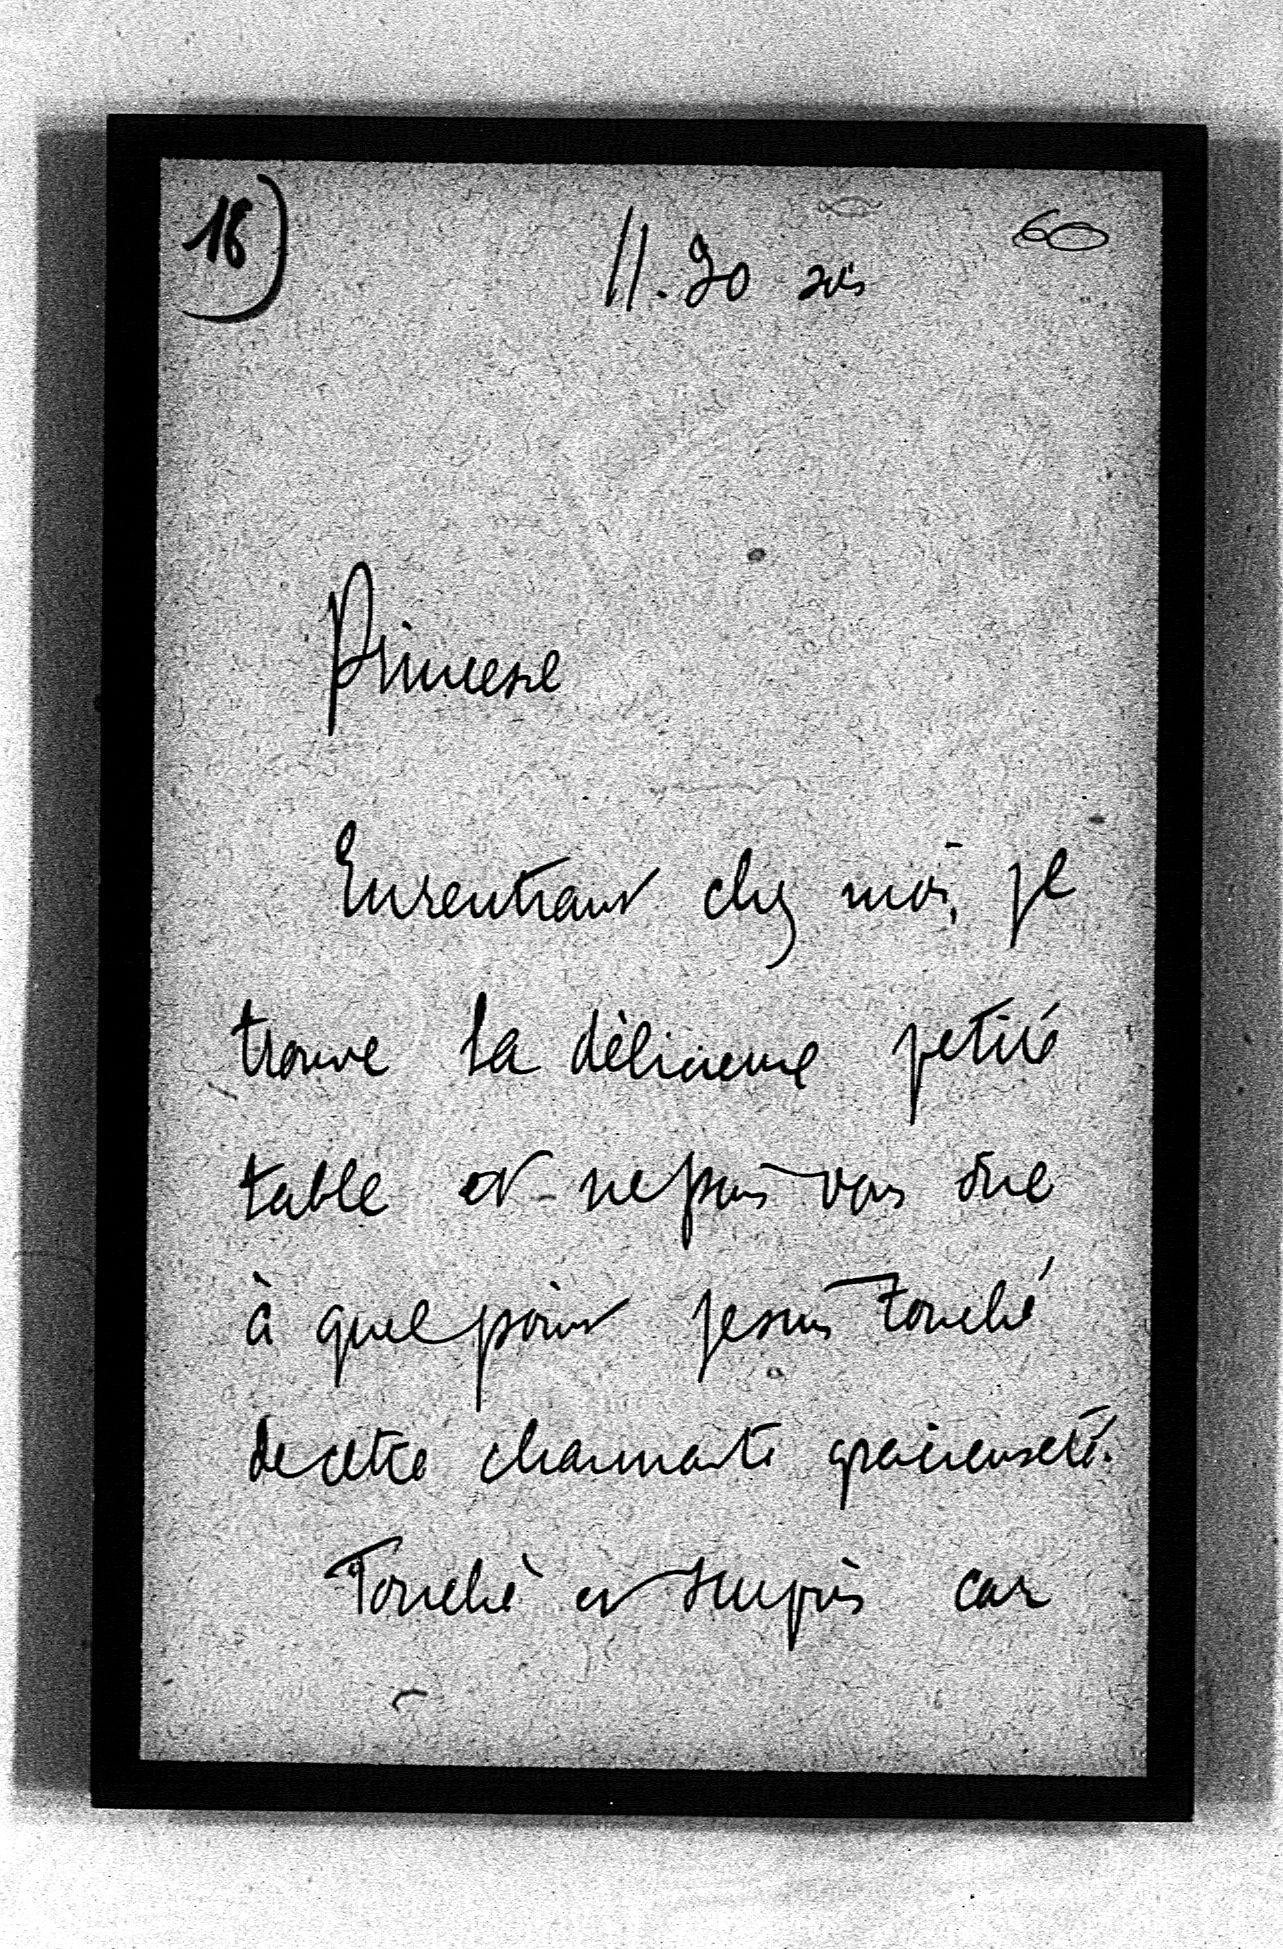 18)
60
11.30 soir
Princesse
En rentrant chez moi, je
trouve la délicieuse petite
table et ne puis vous dire
à quel point je suis touché
de cette charmante gracieuseté.
Touché et surpris car